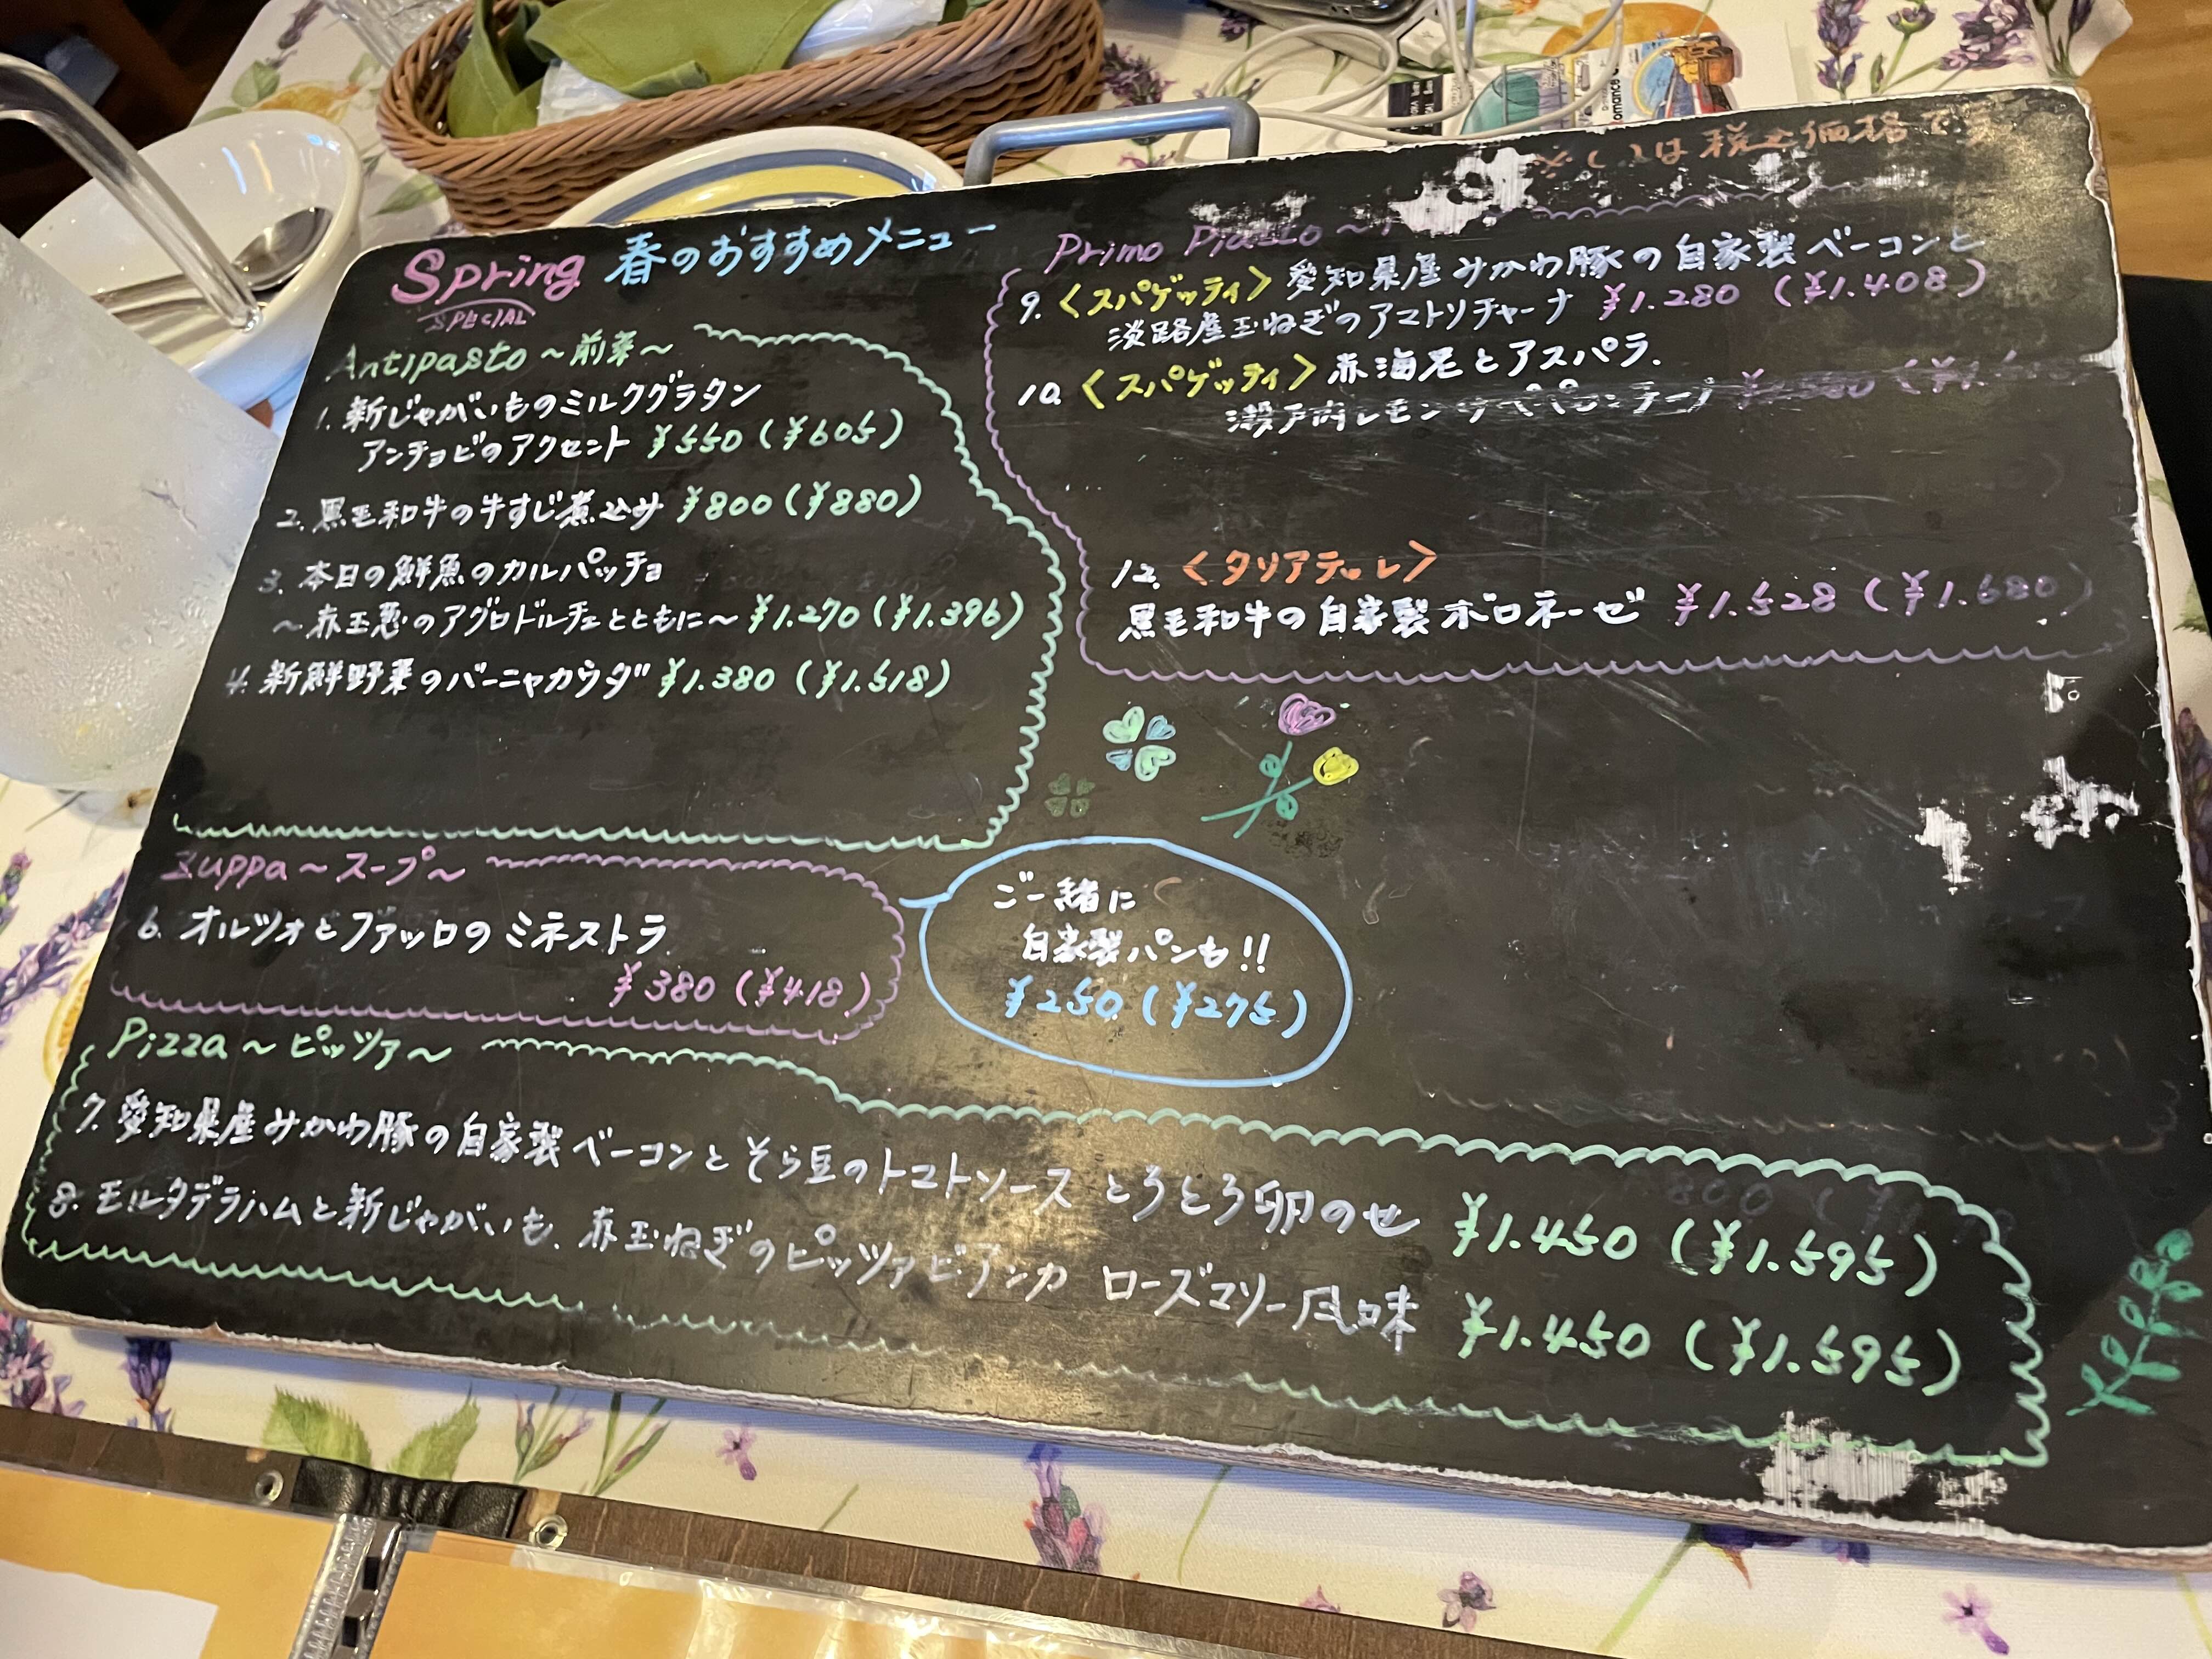 Spring 春のおすすめメニュー
SPECIAL
Antipasto ～前菜～
1. 新じゃがいものミルクグラタン
アンチョビのアクセント ¥550 (¥605)
2. 黒毛和牛の牛すじ煮込み ¥800 (¥880)
3. 本日の鮮魚のカルパッチョ
～赤玉葱のアグロドルチェとともに～ ¥1.270 (¥1.396)
4. 新鮮野菜のバーニャカウダ ¥1.380 (¥1.518)
Zuppa ～スープ～
6. オルツォとファッロのミネストラ
¥380 (¥418)
ご一緒に
自家製パンも!!
¥250 (¥275)
Pizza ～ピッツァ～
7. 愛知県産みかわ豚の自家製ベーコンとそら豆のトマトソース とろとろ卵のせ ¥1.450 (¥1.595)
8. モルタデラハムと新じゃがいも、赤玉ねぎのピッツァビアンカ ローズマリー風味 ¥1.450 (¥1.595)
※( )は税込価格です
Primo Piatto ～
9. 〈スパゲッティ〉愛知県産みかわ豚の自家製ベーコンと
淡路産玉ねぎのアマトリチャーナ ¥1.280 (¥1.408)
10. 〈スパゲッティ〉赤海老とアスパラ、
瀬戸内レモンのペペロンチーノ
12. 〈タリアテッレ〉
黒毛和牛の自家製ボロネーゼ ¥1.528 (¥1.680)